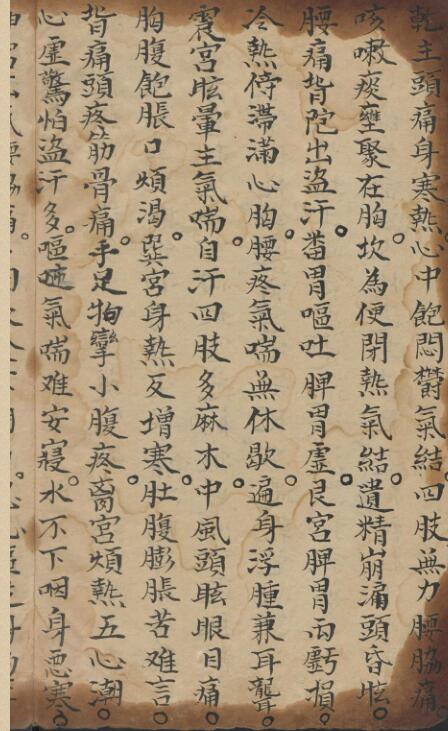 乾主頭痛身寒熱心中飽悶鬱氣結四肢無力腰脇痛
咳嗽痰壅聚在胸坎為便閉熱氣結遺精崩漏頭昏眩
腰痛背陀出盜汗番胃嘔吐脾胃虛艮宮脾胃雨虧損
冷熱停滯滿心胸腰疼氣喘無休歇遍身浮腫兼耳聾
震宮眩暈主氣喘自汗四肢多麻木中風頭眩眼目痛
胸腹飽脹口煩渴巽宮身熱反增寒肚腹膨脹苦难言
背痛頭疼筋骨痛手足拘攣小腹疼离宮煩熱五心潮
心虛驚怕盜汗多嘔吐氣喘难安寢水不下咽身恶寒